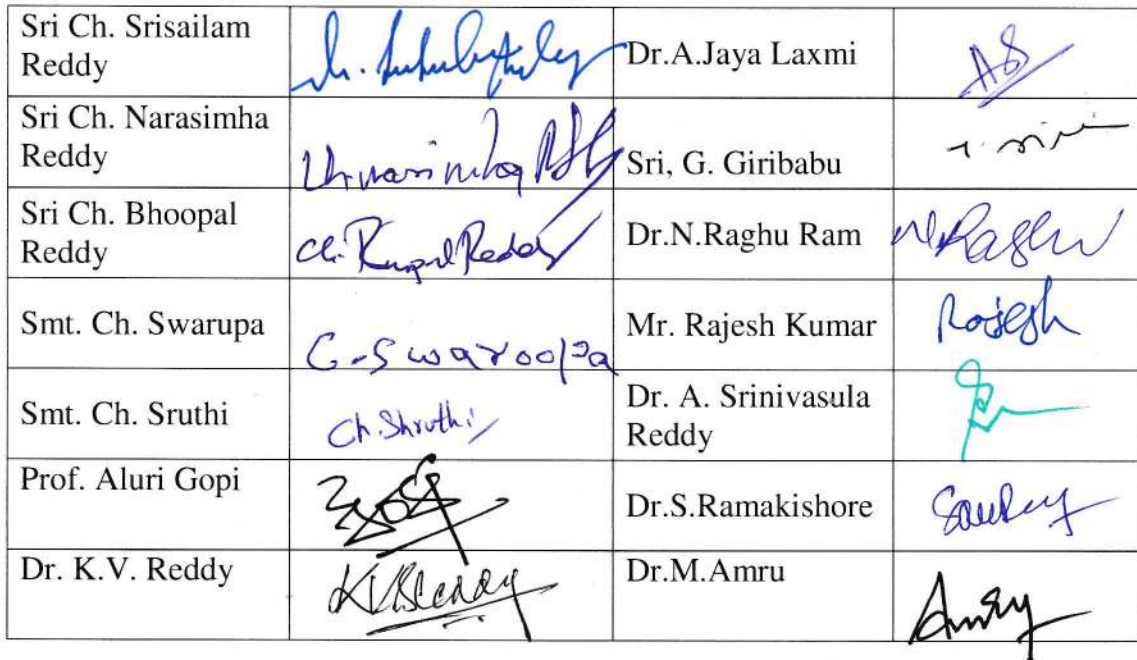 Sri Ch. Srisailam
Reddy
Dr.A.Jaya Laxmi
Sri Ch. Narasimha
Reddy
Sri, G. Giribabu
Sri Ch. Bhoopal
Reddy
Dr.N.Raghu Ram
N. Raghu
Smt. Ch. Swarupa
C. Swaroopa
Mr. Rajesh Kumar
Rajesh
Smt. Ch. Sruthi
Ch. Shruthi
Dr. A. Srinivasula
Reddy
Prof. Aluri Gopi
Dr.S.Ramakishore
Dr. K.V. Reddy
Dr.M.Amru